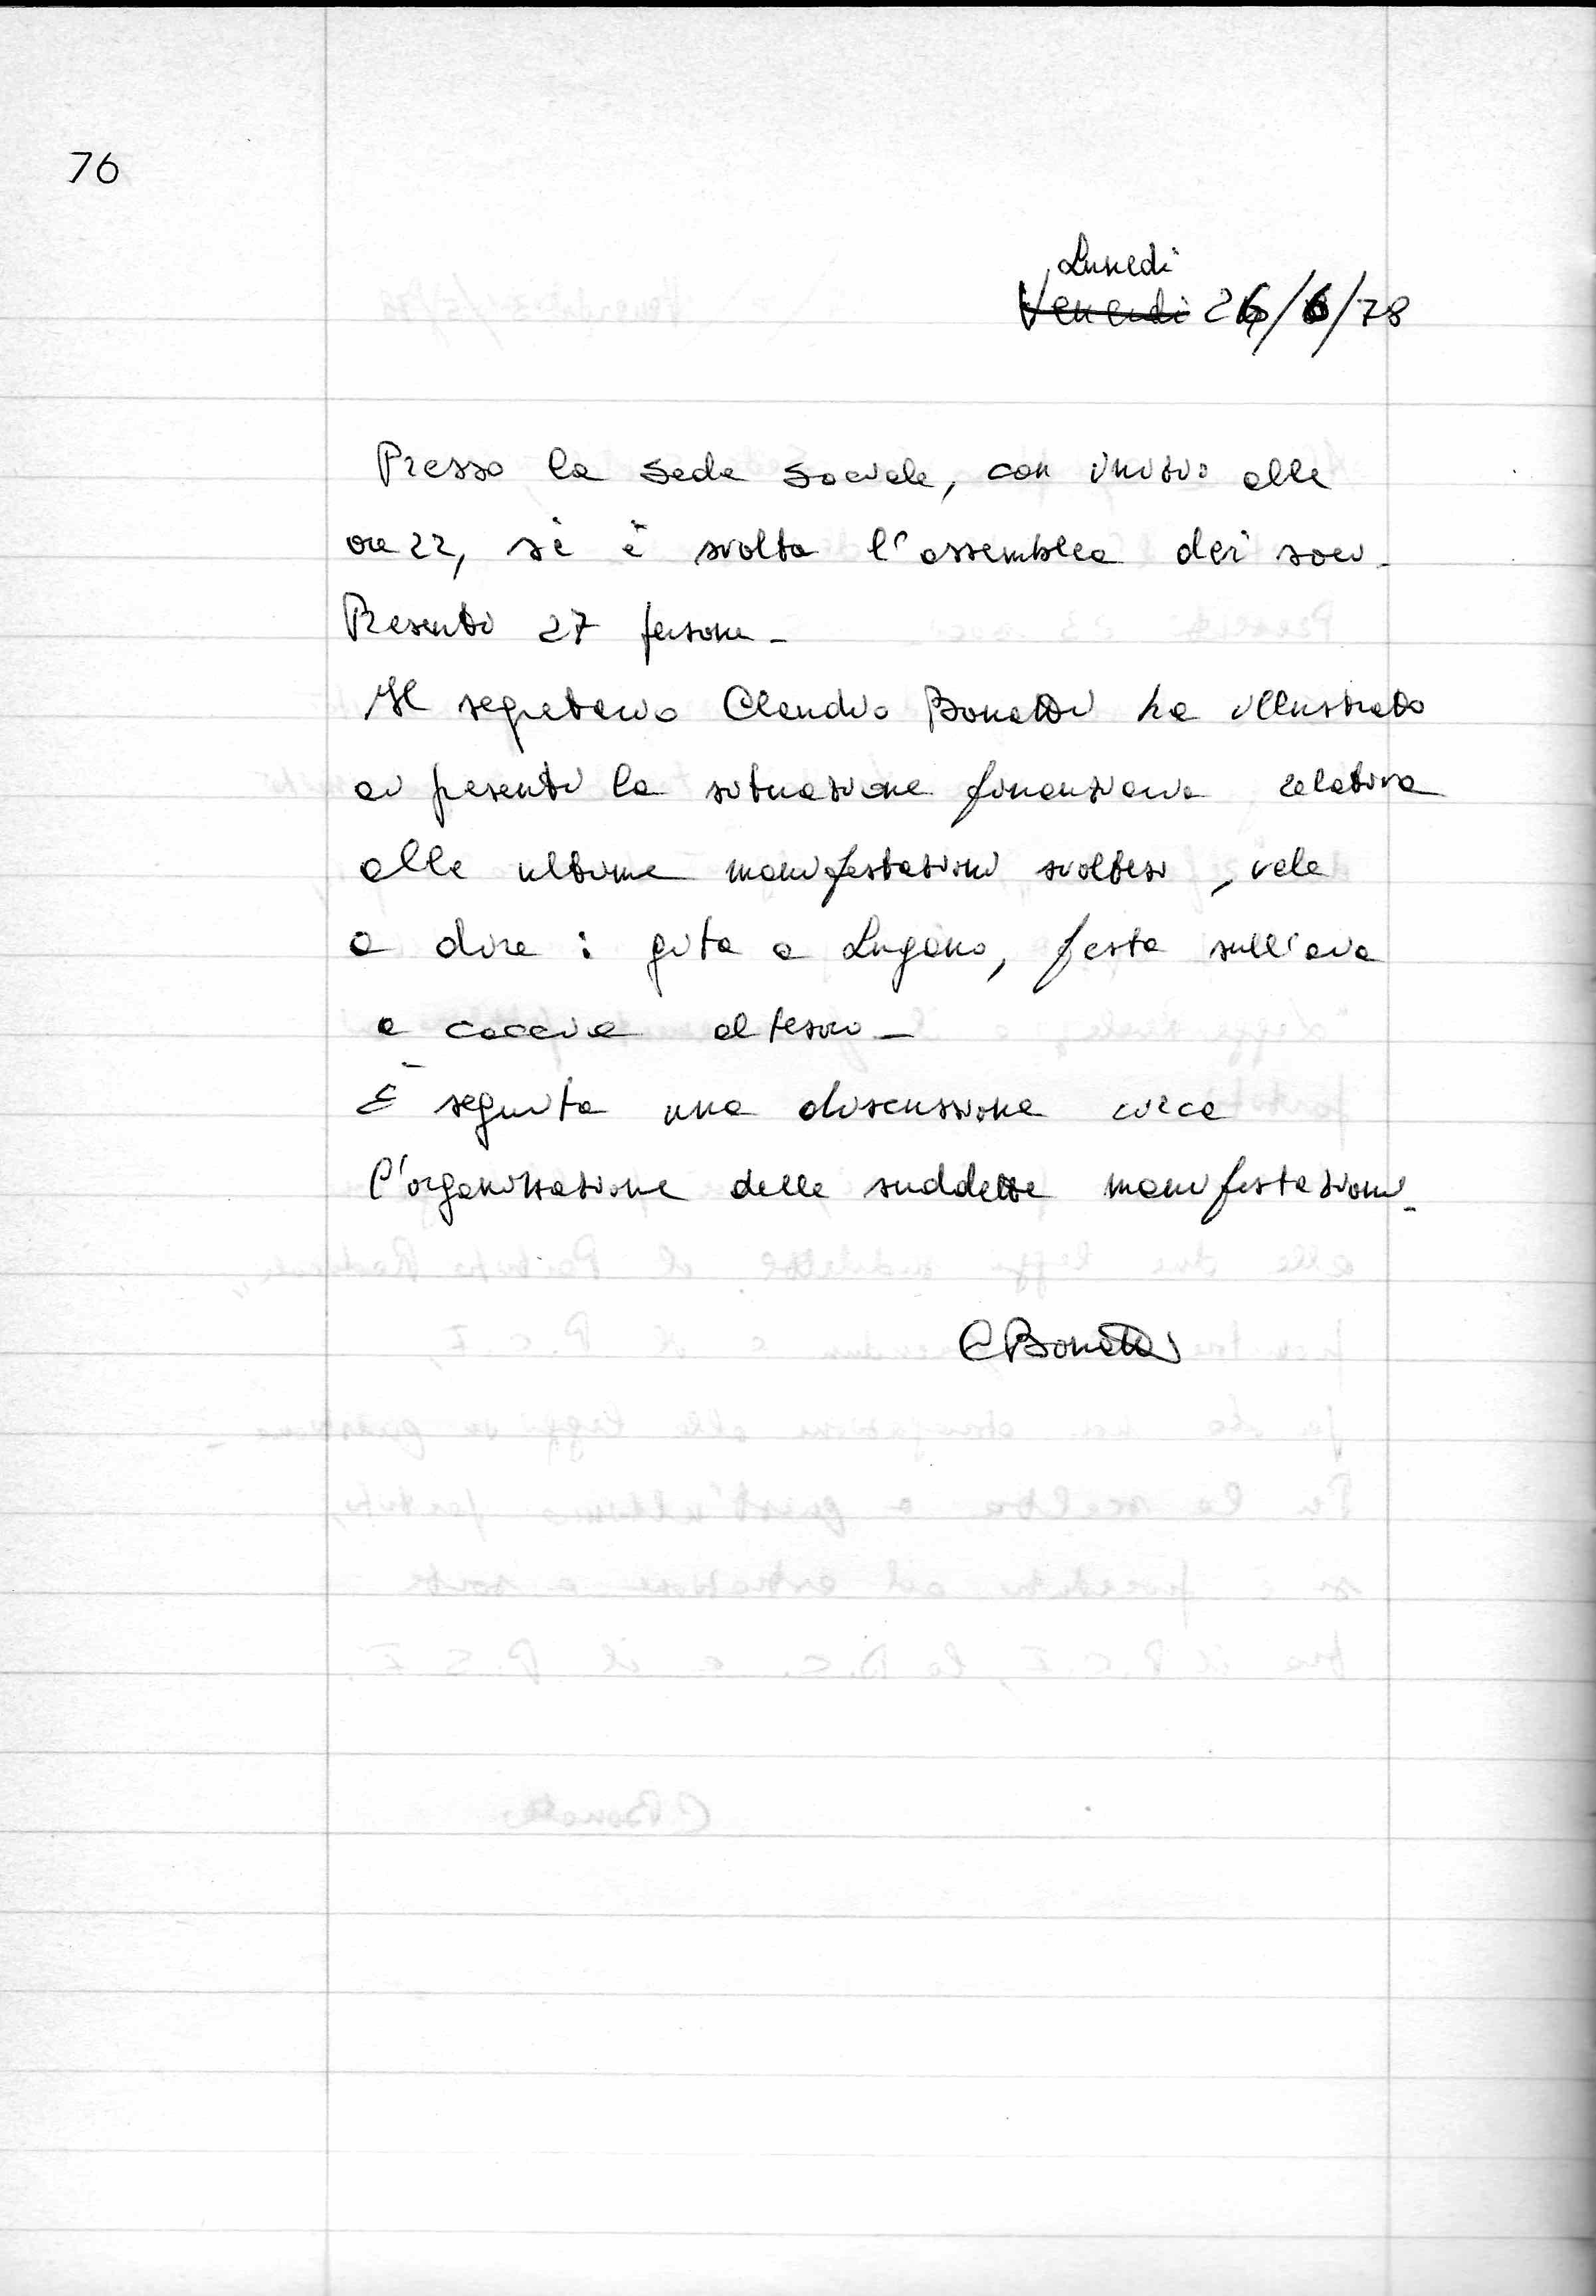 76
Lunedì
Venerdì 26/6/78
Presso la sede sociale, con inizio alle
ore 22, si è svolta l'assemblea dei soci.
Presenti 27 persone -
Il segretario Claudio Bonatti ha illustrato
ai presenti la situazione finanziaria relativa
alle ultime manifestazioni svoltesi, vale
a dire : gita a Lugano, festa sull'aia
e caccia al tesoro -
È seguita una discussione circa
l'organizzazione delle suddette manifestazioni -
CBonatti